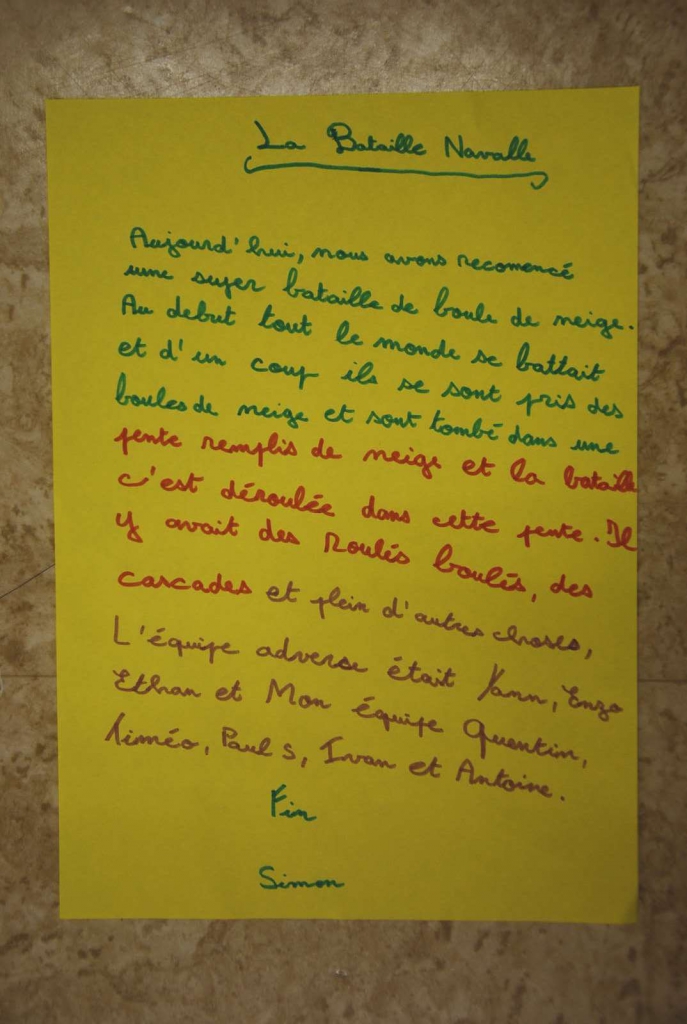 La Bataille Navalle
Aujourd'hui, nous avons recomencé
une super bataille de boule de neige.
Au debut tout le monde se battait
et d'un coup ils se sont pris des
boules de neige et sont tombé dans une
pente remplis de neige et la bataille
c'est déroulée dans cette pente. Il
y avait des Roulés boulés, des
cascades et plein d'autres choses,
L'équipe adverse était Yann, Enzo
Ethan et Mon équipe Quentin,
Paul s, Ivan et Antoine.
Fin
Simon